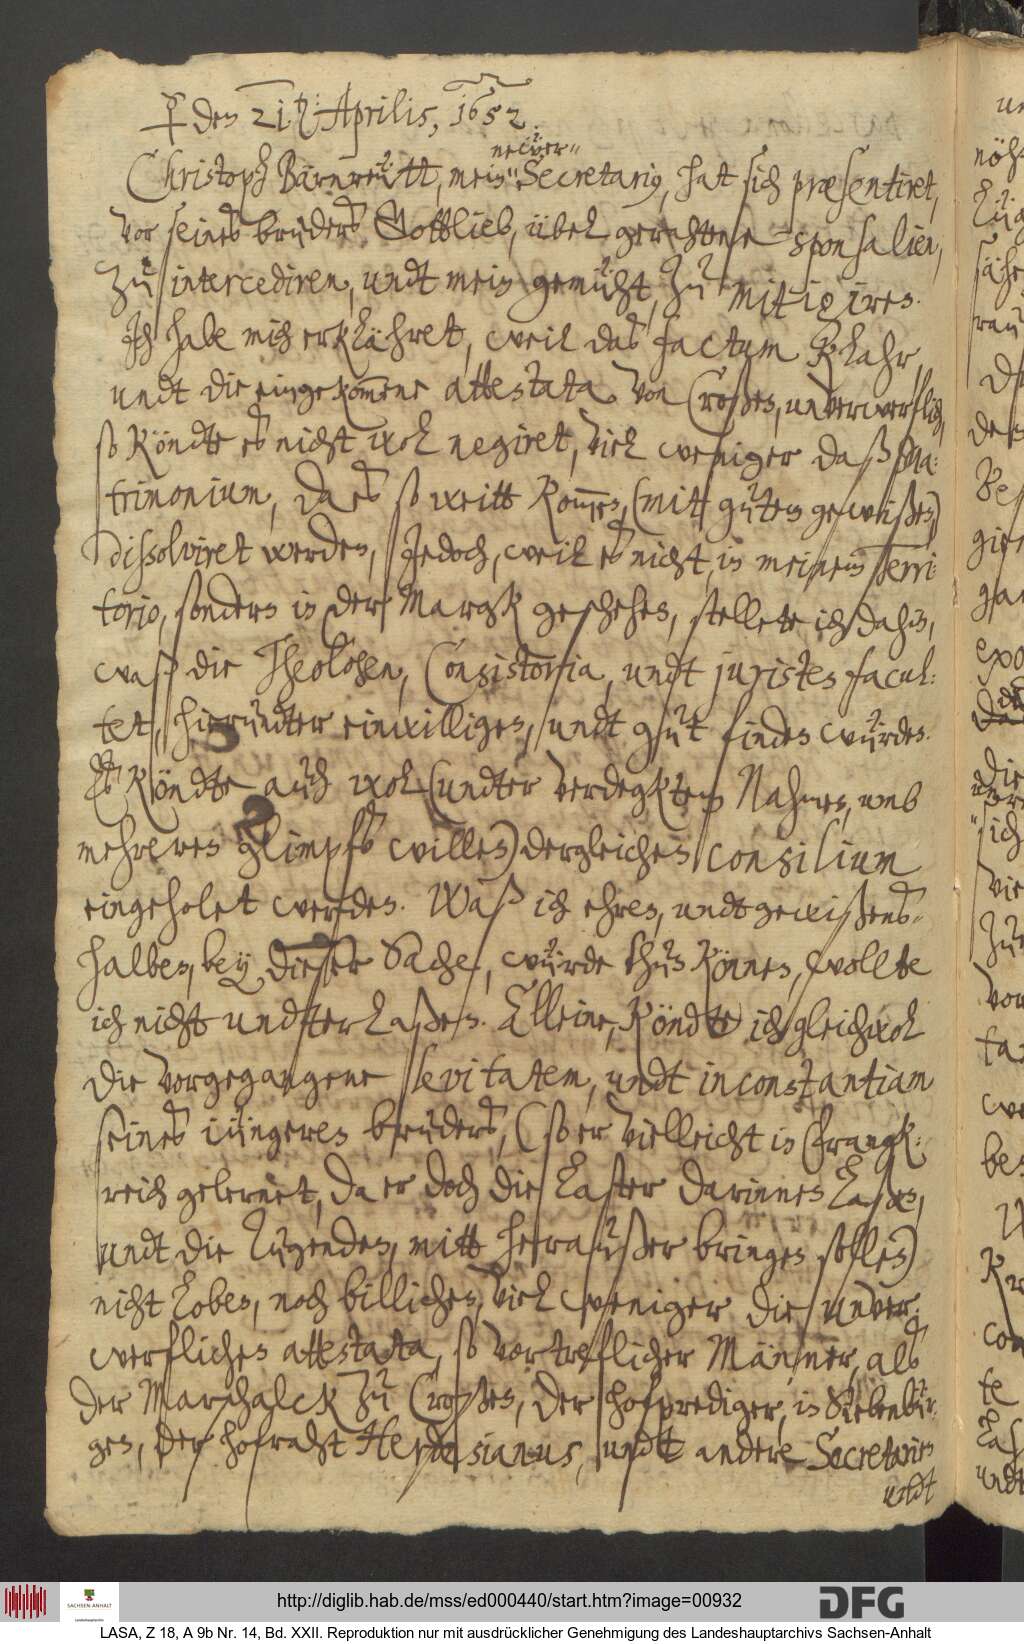 ☿ den 21. t: Aprilis, 1652.
neẅer//
Christoph Bärnreütt, mein Secretarius, hat sich præsentiret,
vor seines bruders Gottlieb, übel gerahtene sponsalien,
zu intercediren, undt mein gemüht, zu mitigiren.
Ich habe mich erklähret, weil das factum klahr,
undt die eingekommene attestata von Croßen, unverwerflich,
so köndte es nicht wol negiret, viel weniger daß Ma-
trimonium, da es so weitt kommen, (mitt gutem gewißen)
dissolviret werden, Jedoch, weil es nicht, in meinem Terri-
torio, sondern in der Margk geschehen, stellete ich dahin,
waß die Theologen, Consistoria, undt juristen facul-
tet, hierundter einwilligen, undt gut finden würden.
Es köndte auch wol (undter verdegktem Nahmen, umb
mehreren glimpfs willen) dergleichen consilium
eingeholet werden. Waß ich ehren, undt gewißens-
halben, bey dieser Sache, würde thun können, wollte
ich nicht undterlaßen. Alleine, köndte ich gleichwol
die vorgegangene levitatem, undt inconstantiam
seines iüngeren bruders, (so er vielleicht in Frangk-
reich gelernet, da er doch die Laster darinnen laßen,
undt die Tugenden, mitt heraußer bringen sollen)
nicht loben, noch billichen, viel weniger die unver-
werflichen attestata, so vortreflicher Männer, als
der Marschalck zu Croßen, der hofprediger, in Siebenbür-
gen, der hofraht Herdesianus, undt andere Secretarien
undt
http://diglib.hab.de/mss/ed000440/start.htm?image=00932
DFG
SACHSEN-ANHALT
Landeshauptarchiv
LASA, Z 18, A 9b Nr. 14, Bd. XXII. Reproduktion nur mit ausdrücklicher Genehmigung des Landeshauptarchivs Sachsen-Anhalt